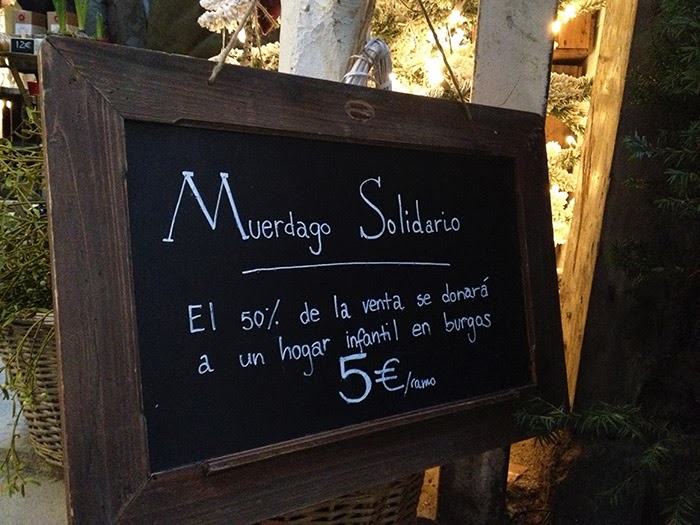 12€
Muerdago Solidario
El 50% de la venta se donará
a un hogar infantil en burgos
5€/ramo